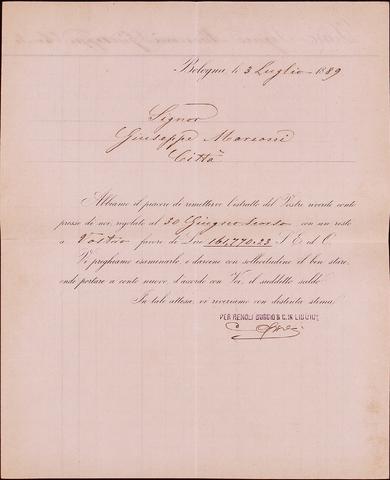 Bologna li 3 Luglio 1889
Signor
Giuseppe Marconi
Città
Abbiamo il piacere di rimettervi l'estratto del Vostro riverito conto
presso di noi, regolato al 30 Giugno scorso con un resto
a Vostro favore di Lire 161,770.23 S. E. d O.
Vi preghiamo esaminarlo e darcene con sollecitudine il ben stare,
onde portare a conto nuovo, d'accordo con Voi, il suddetto saldo.
In tale attesa, vi riveriamo con distinta stima
PER RENOLI BUGGIO & C. IN LIQUIDE